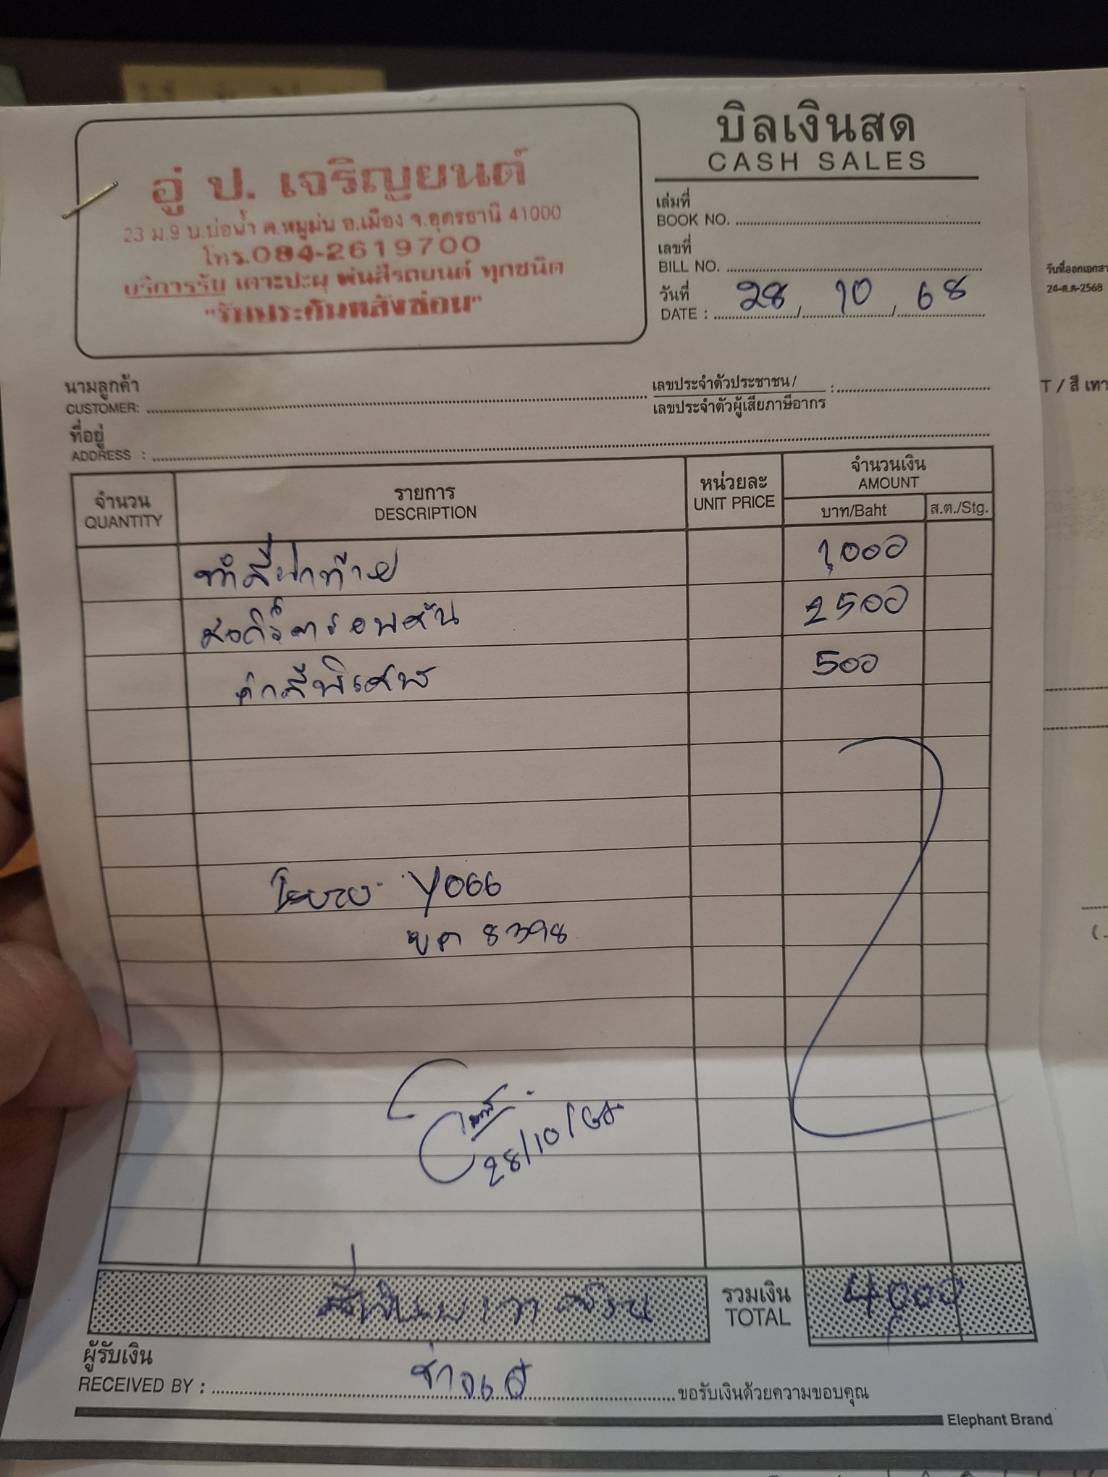 อู่ ป. เจริญยนต์
23 ม.9 บ.บ่อน้ำ ต.หมูม่น อ.เมือง จ.อุดรธานี 41000
โทร.084-2619700
บริการรับ เคาะปะผุ พ่นสีรถยนต์ ทุกชนิด
"รับประกันหลังซ่อม"
บิลเงินสด
CASH SALES
เล่มที่
BOOK NO.
เลขที่
BILL NO.
วันที่
DATE : 28 / 10 / 68
วันที่ออกเอกสาร
24-ต.ค.-2568
T / สี เทา
นามลูกค้า
CUSTOMER:
เลขประจำตัวประชาชน/ :
เลขประจำตัวผู้เสียภาษีอากร
ที่อยู่
ADDRESS :
จำนวน
QUANTITY
รายการ
DESCRIPTION
หน่วยละ
UNIT PRICE
จำนวนเงิน
AMOUNT
บาท/Baht
ส.ต./Stg.
ทำสีฝาท้าย 1,000
2500
ค่าสีพิเศษ 500
Y066
ขค 8398
28/10/68
สี่พันบาทถ้วน
รวมเงิน
TOTAL
4,000
ผู้รับเงิน
RECEIVED BY :
ขอรับเงินด้วยความขอบคุณ
Elephant Brand